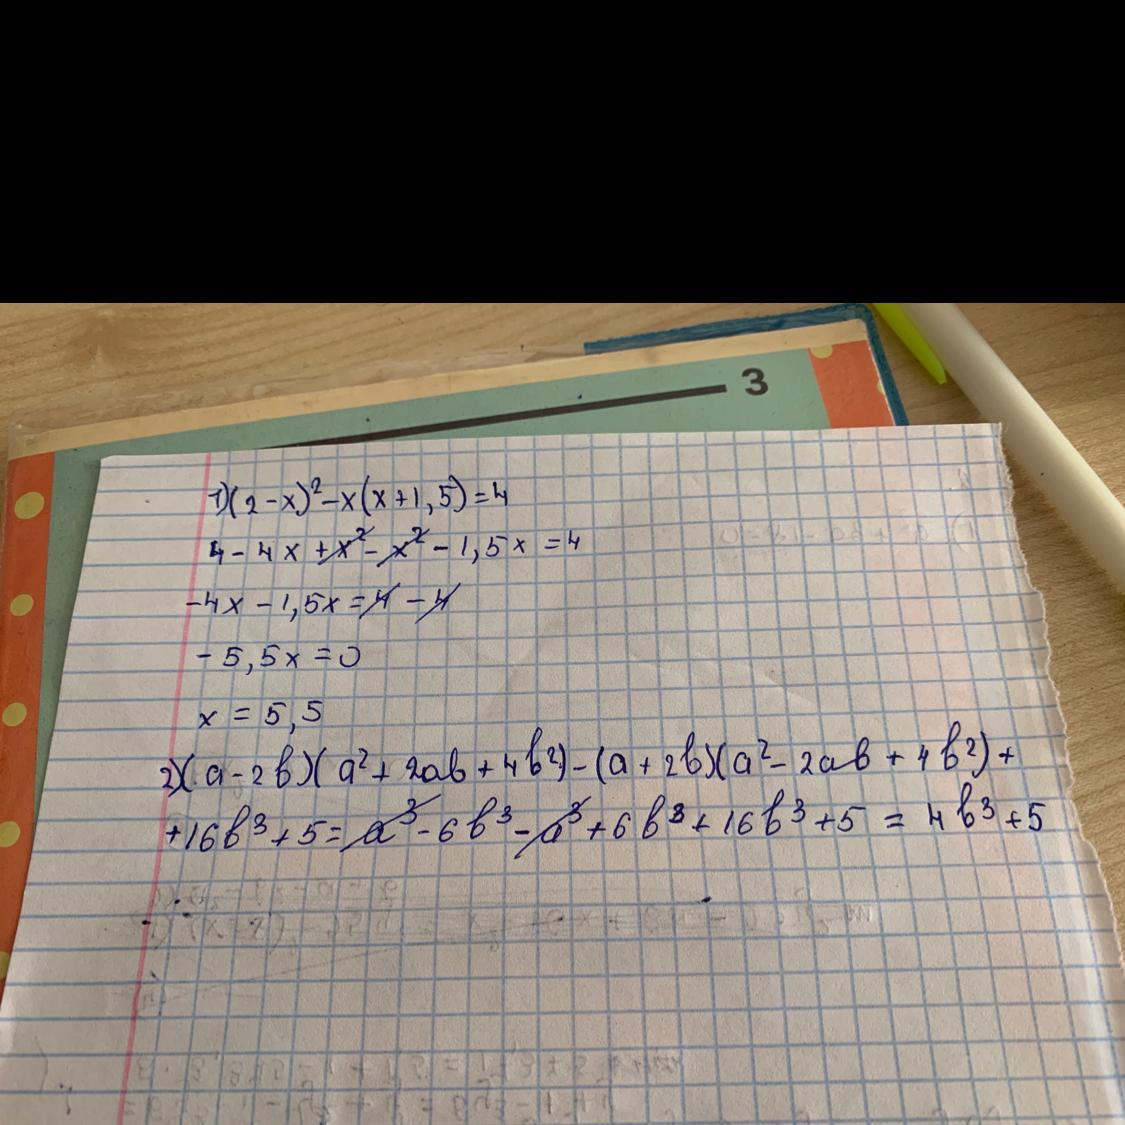 3
1)(2-x)²-x(x+1,5)=4
4-4x+x²-x²-1,5x=4
-4x-1,5x=4-4
-5,5x=0
x=5,5
2)(a-2b)(a²+2ab+4b²)-(a+2b)(a²-2ab+4b²)+
+16b³+5=a³-6b³-a³+6b³+16b³+5=4b³+5